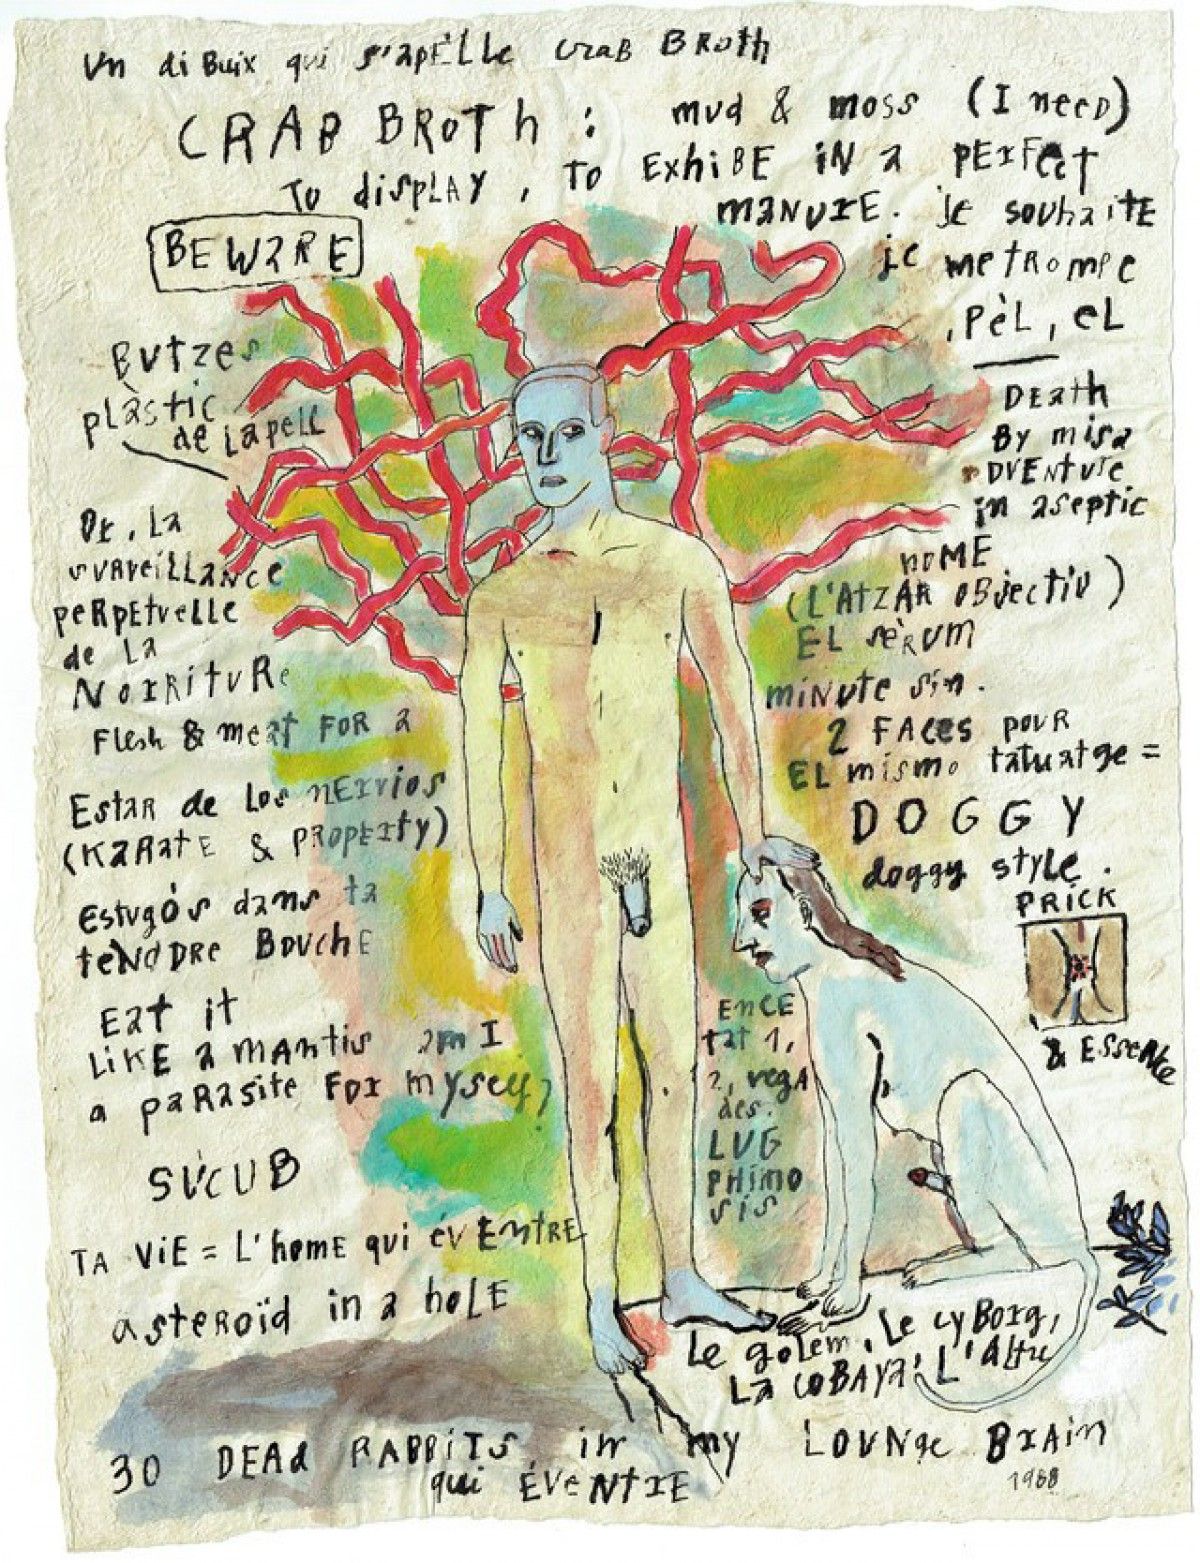 Un dibuix qui s'apèlle crab BRoth
CRAB BRoth : mud & moss (I need)
to display, to EXHIBE in a PERFect
manure. je souhaite
je me trompe
, Pèl, el
BEWARE
Butzes
plàstic
de la pell
Death
By misa
DVenture
in aseptic
HOME
(L'Atzar objectiu)
EL sèrum
minute sin.
2 FACES pour
EL mismo tatuatge =
DOGGY
doggy style.
PRICK
& Essence
Or, La
surveillance
perpetuelle
de la
Norriture
Flesh & meat FOR a
Estar de Los nerrios
(Karate & Property)
Estugós dans ta
tendre Bouche
Eat it
Like a mantis am I
a parasite for myself,
SÚCUB
TA VIE = L'home qui éventre
asteroïd in a hole
ENCE
tat 1,
2, vega
des.
LUG
PHIMO
SIS
Le golem, Le cyborg,
La cobaya, L'Altre
30 DEAd RABBITS in my Lounge Brain
qui ÉVENTRE
1988